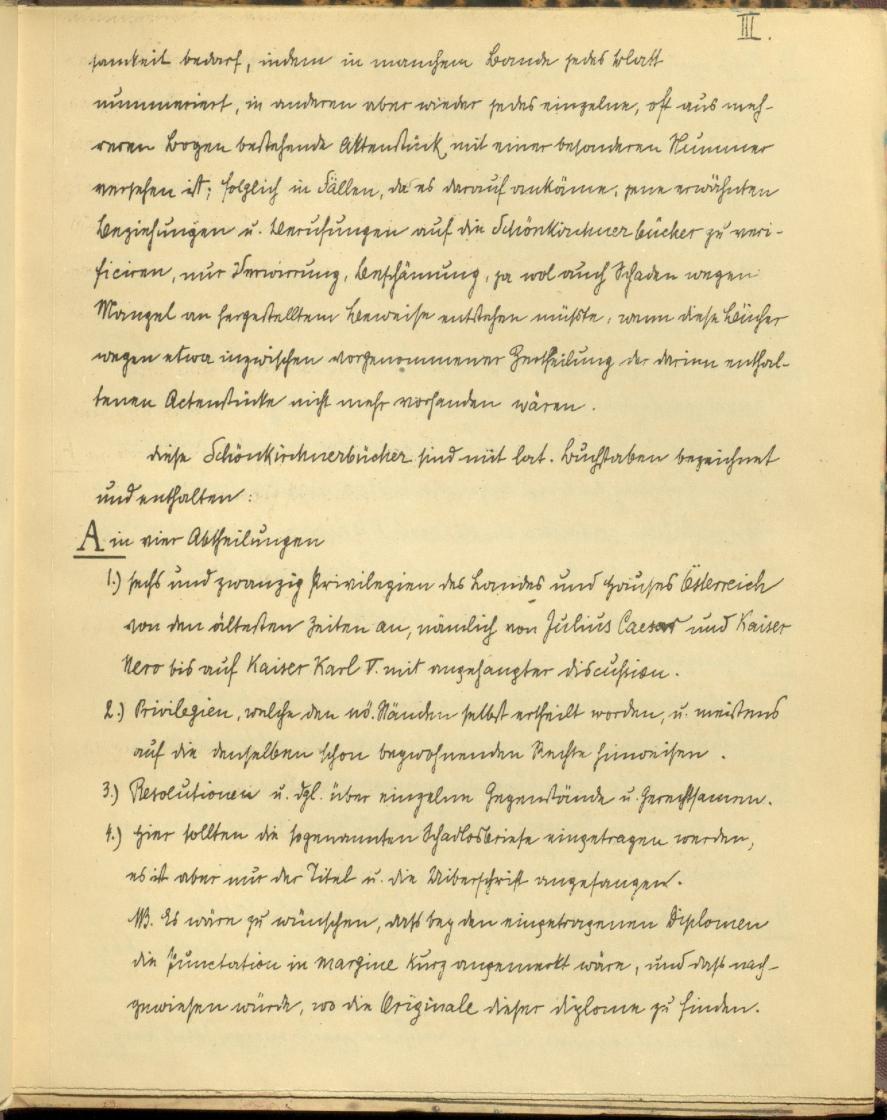 III.
samkeit bedarf, indem in manchem Bande jedes Blatt
nummeriert, in anderen aber wieder jedes einzelne, oft aus meh-
reren Bogen bestehende Aktenstück mit einer besonderen Nummer
versehen ist; folglich in Fällen, da es darauf ankäme, jene erwähnten
Beziehungen u. Berufungen auf die Schönkirchnerbücher zu veri-
ficiren, nur Verwirrung, Beschämung, ja wol auch Schaden wegen
Mangel an hergestelltem Beweise entstehen müsste, wann diese Bücher
wegen etwa inzwischen vorgenommener Zertheilung der darinn enthal-
tenen Actenstücke nicht mehr vorhanden wären.
diese Schönkirchnerbücher sind mit lat. Buchstaben bezeichnet
und enthalten:
A in vier Abtheilungen
1.) sechs und zwanzig Privilegien des Landes und Hauses Österreich
von den ältesten Zeiten an, nämlich von Julius Caesar und Kaiser
Nero bis auf Kaiser Karl V. mit angehangter discussion.
2.) Privilegien, welche den nö. Ständen selbst ertheilt worden, u. meistens
auf die denselben schon beywohnenden Rechte hinweisen.
3.) Resolutionen u. dgl. über einzelne Gegenstände u. Gerechtsamen.
4.) Hier sollten die sogenannten Schadlosbriefe eingetragen werden,
es ist aber nur der Titel u. die Uiberschrift angefangen.
NB. Es wäre zu wünschen, dass bey den eingetragenen Diplomen
die Punctation in margine kurz angemerkt wäre, und dass nach-
gewiesen würde, wo die Originale dieser diplome zu finden.